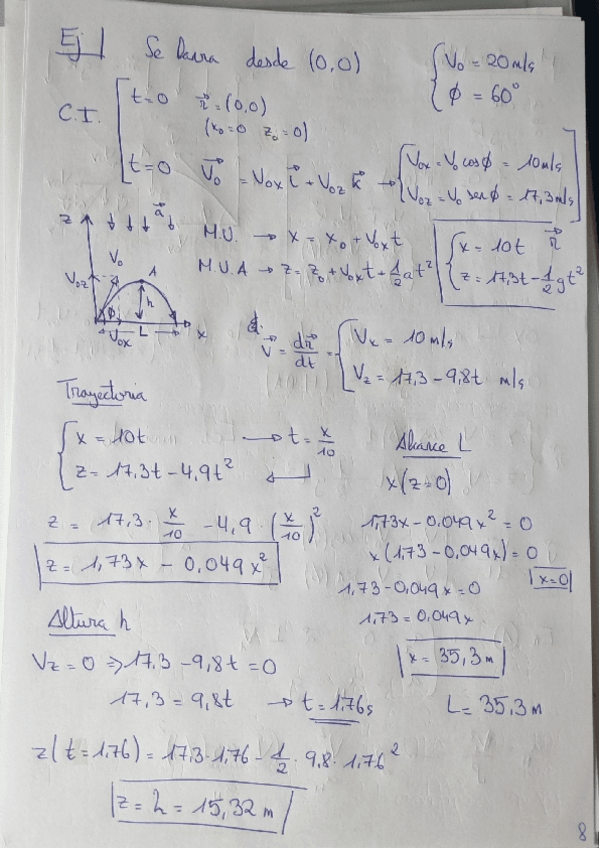 Ej 1 Se lanza desde (0,0) { V₀ = 20 m/s
ϕ = 60°
C.I. [ t=0 r⃗ = (0,0)
(x₀=0 z₀=0)
t=0 V⃗₀ = V₀ₓ i⃗ + V₀z k⃗ → { V₀ₓ = V₀ cosϕ = 10 m/s
V₀z = V₀ senϕ = 17,3 m/s ]
z a⃗
V₀ A
V₀z h
ϕ
V₀ₓ L x
M.U. → x = x₀ + V₀ₓt
M.U.A → z = z₀ + V₀ₓt + 1/2 at²
{ x = 10t r⃗
z = 17,3t - 1/2 gt²
V⃗ = dr⃗/dt = { Vₓ = 10 m/s
Vz = 17,3 - 9,8t m/s
Trayectoria
{ x = 10t → t = x/10
z = 17,3t - 4,9t² ↵
z = 17,3 · x/10 - 4,9 · (x/10)²
z = 1,73x - 0,049x²
Alcance L
x(z=0)
1,73x - 0,049x² = 0
x(1,73 - 0,049x) = 0
x=0
1,73 - 0,049x = 0
1,73 = 0,049x
x = 35,3 m
L = 35,3 m
Altura h
Vz = 0 ⇒ 17,3 - 9,8t = 0
17,3 = 9,8t → t = 1,76 s
z(t=1,76) = 17,3 · 1,76 - 1/2 · 9,8 · 1,76²
z = h = 15,32 m
8